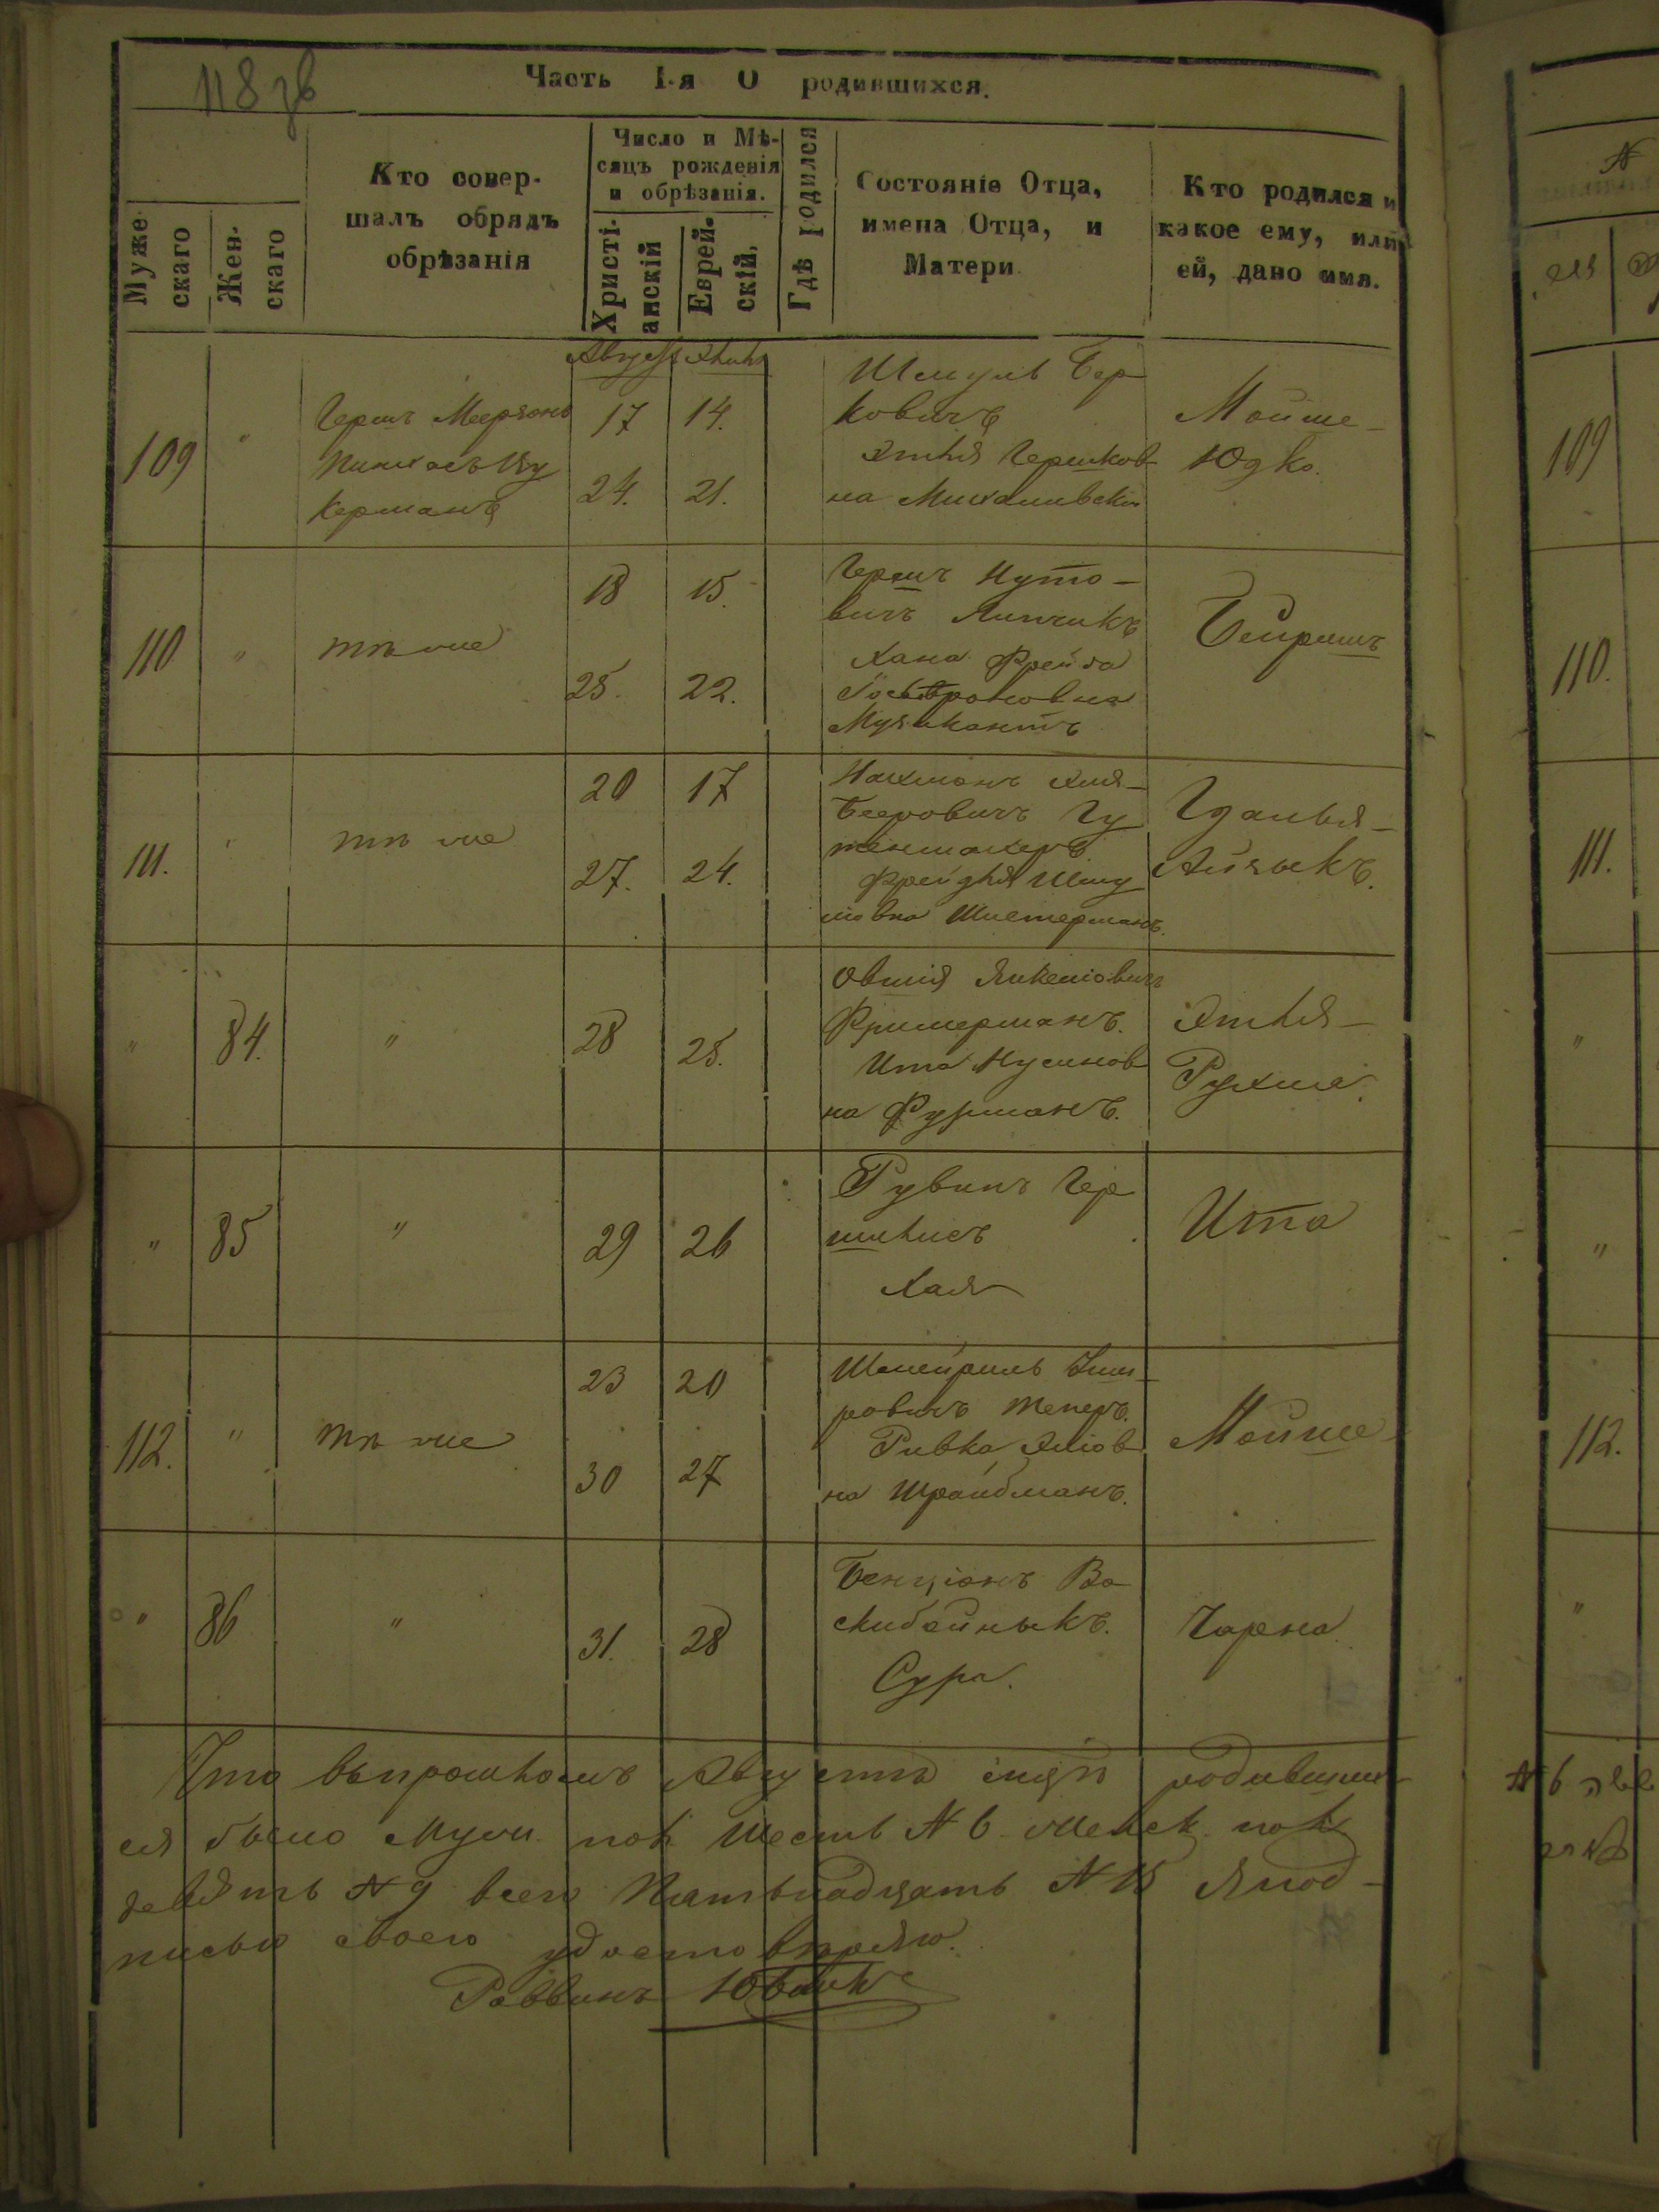 118 зв
Часть I-я О родившихся.
Муже-
скаго
Жен-
скаго
Кто совер-
шалъ обрядъ
обрѣзанія
Число и Мѣ-
сяцъ рожденія
и обрѣзанія.
Христі-
анскій
Еврей-
скій.
Гдѣ родился
Состояніе Отца,
имена Отца, и
Матери
Кто родился и
какое ему, или
ей, дано имя.
109 "
Герш Меерзонъ
Пинхасъ Цу
керманъ
17 14.
24. 21.
Шмуль Бер
ковичъ
Этля Гершков
на
Мойше-
Юдко.
110 " тѣ же
18 15.
25. 22.
Гершъ Нуто-
вичъ Липчикъ
Хана Фрейда
Музикантъ
Бейришъ
111. " тѣ же
20 17
27. 24.
Нахманъ
Беровичъ Гу
Фрейдля Шму
ловна Шистерманъ.
Гдалья-
Айзыкъ.
" 84. " 28 25.
Овшія Янкеліовичъ
Фримерманъ.
Ита Нусинов
на Фурманъ.
Этля-
Рухля.
" 85 " 29 26
Рувинъ Гер
Хая
Ита
112. " тѣ же
23 20
30 27
ровичъ Теперъ.
Ривка Эліов
на Шрайбманъ.
Мойше
" 86 " 31. 28
Бенціонъ Во
скибойныкъ.
Сура.
Чарна.
Что въ прошломъ Августѣ родивших
ся было Муж. пол. шесть № 6 Женск. пол.
девять № 9 всего Пятьнадцать № 15 Я под-
писью своею удостовѣряю.
Раввинъ
109
110.
111.
"
"
112.
"